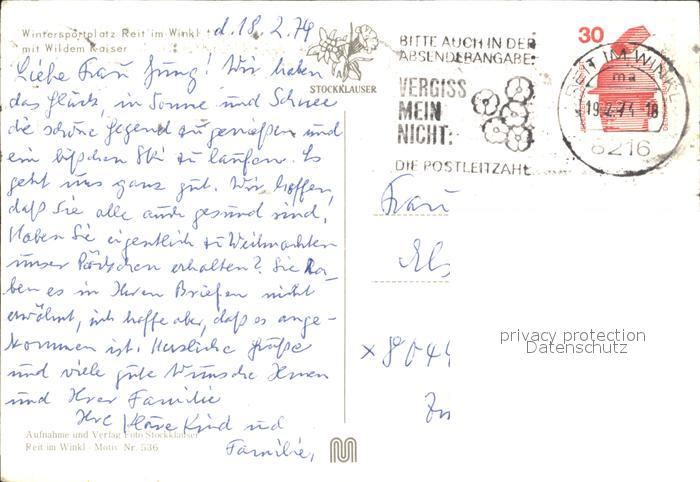 Wintersportplatz Reit im Winkl
mit Wildem Kaiser
d. 18. 2. 74
Liebe Frau Jung! Wir haben
das Glück, in Sonne und Schnee
die schöne Gegend zu genießen und
ein bißchen Ski zu laufen. Es
geht uns ganz gut. Wir hoffen,
daß Sie alle auch gesund sind.
Haben Sie eigentlich zu Weihnachten
unser Päckchen erhalten? Sie ha-
ben es in Ihren Briefen nicht
erwähnt, ich hoffe aber, daß es ange-
kommen ist. Herzliche Grüße
und viele gute Wünsche Ihnen
und Ihrer Familie
Ihre Kind und
Familie.
Aufnahme und Verlag Foto Stockklauser
Reit im Winkl - Motiv Nr. 536
STOCKKLAUSER
BITTE AUCH IN DER
ABSENDERANGABE:
VERGISS
MEIN
NICHT:
DIE POSTLEITZAHL
30
REIT IM WINKL
ma
19.2.74-18
8216
Frau
privacy protection
Datenschutz